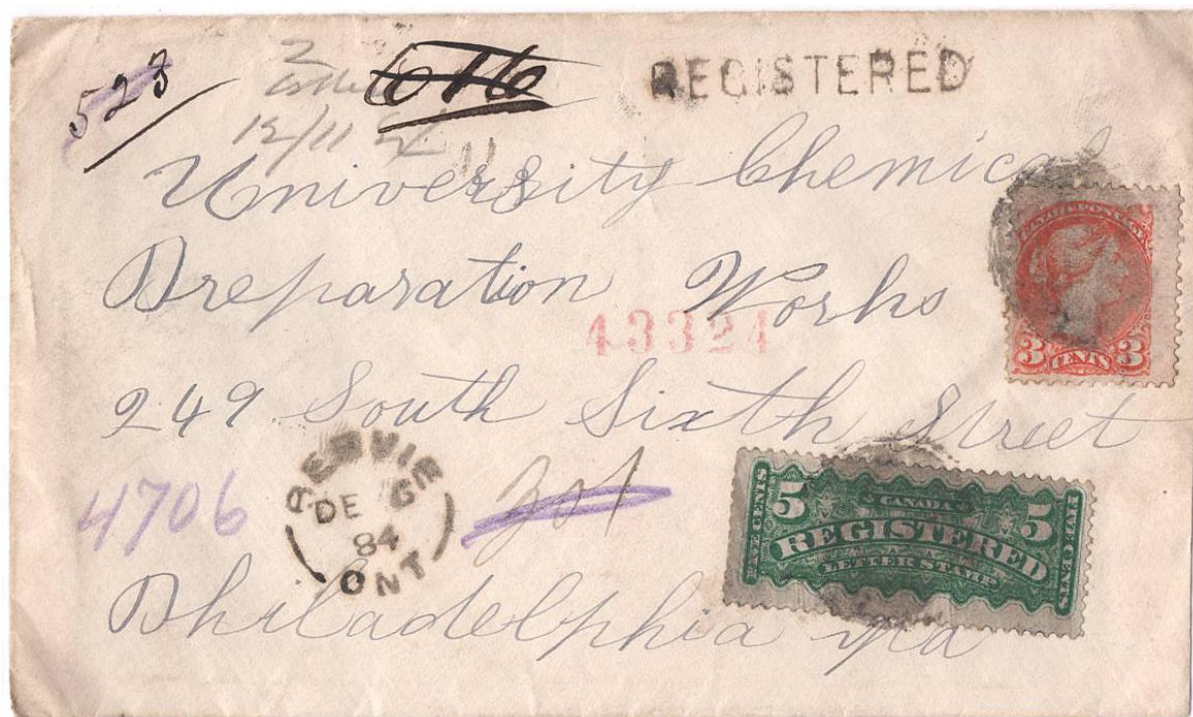 523
REGISTERED
12/11
University Chemical
Preparation Works
43324
249 South Sixth Street
4706
DE 6
84
ONT
Philadelphia Pa
CANADA POSTAGE
3 CENTS 3
5 CANADA 5
REGISTERED
LETTER STAMP
FIVE CENTS
FIVE CENTS